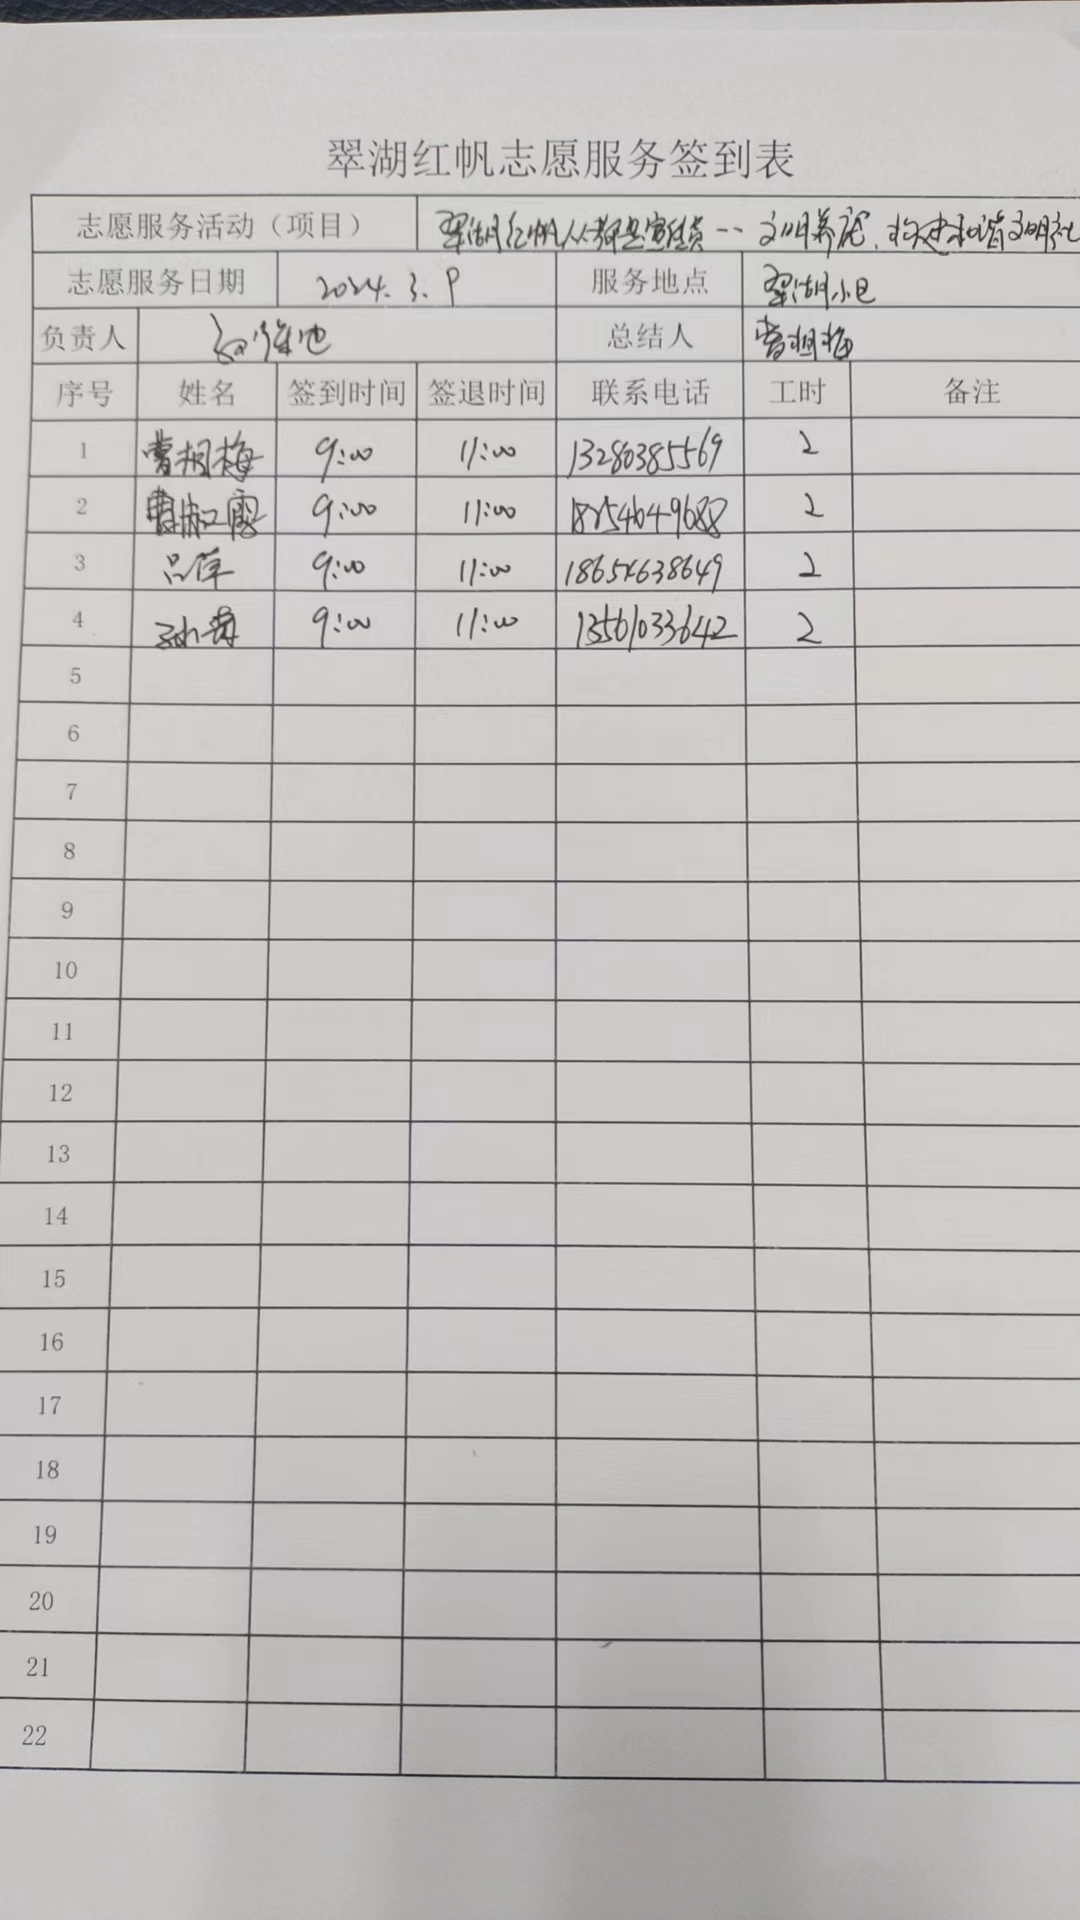 翠湖红帆志愿服务签到表
志愿服务活动（项目） 翠湖红帆人人都是宣传员--文明养宠、构建和谐文明
志愿服务日期 2024.3.9 服务地点 翠湖小区
负责人 总结人 曹相梅
序号 姓名 签到时间 签退时间 联系电话 工时 备注
1 曹相梅 9:00 11:00 13280385569 2
2 9:00 11:00 18254649688 2
3 吕萍 9:00 11:00 18654638649 2
4 9:00 11:00 13561033642 2
5
6
7
8
9
10
11
12
13
14
15
16
17
18
19
20
21
22